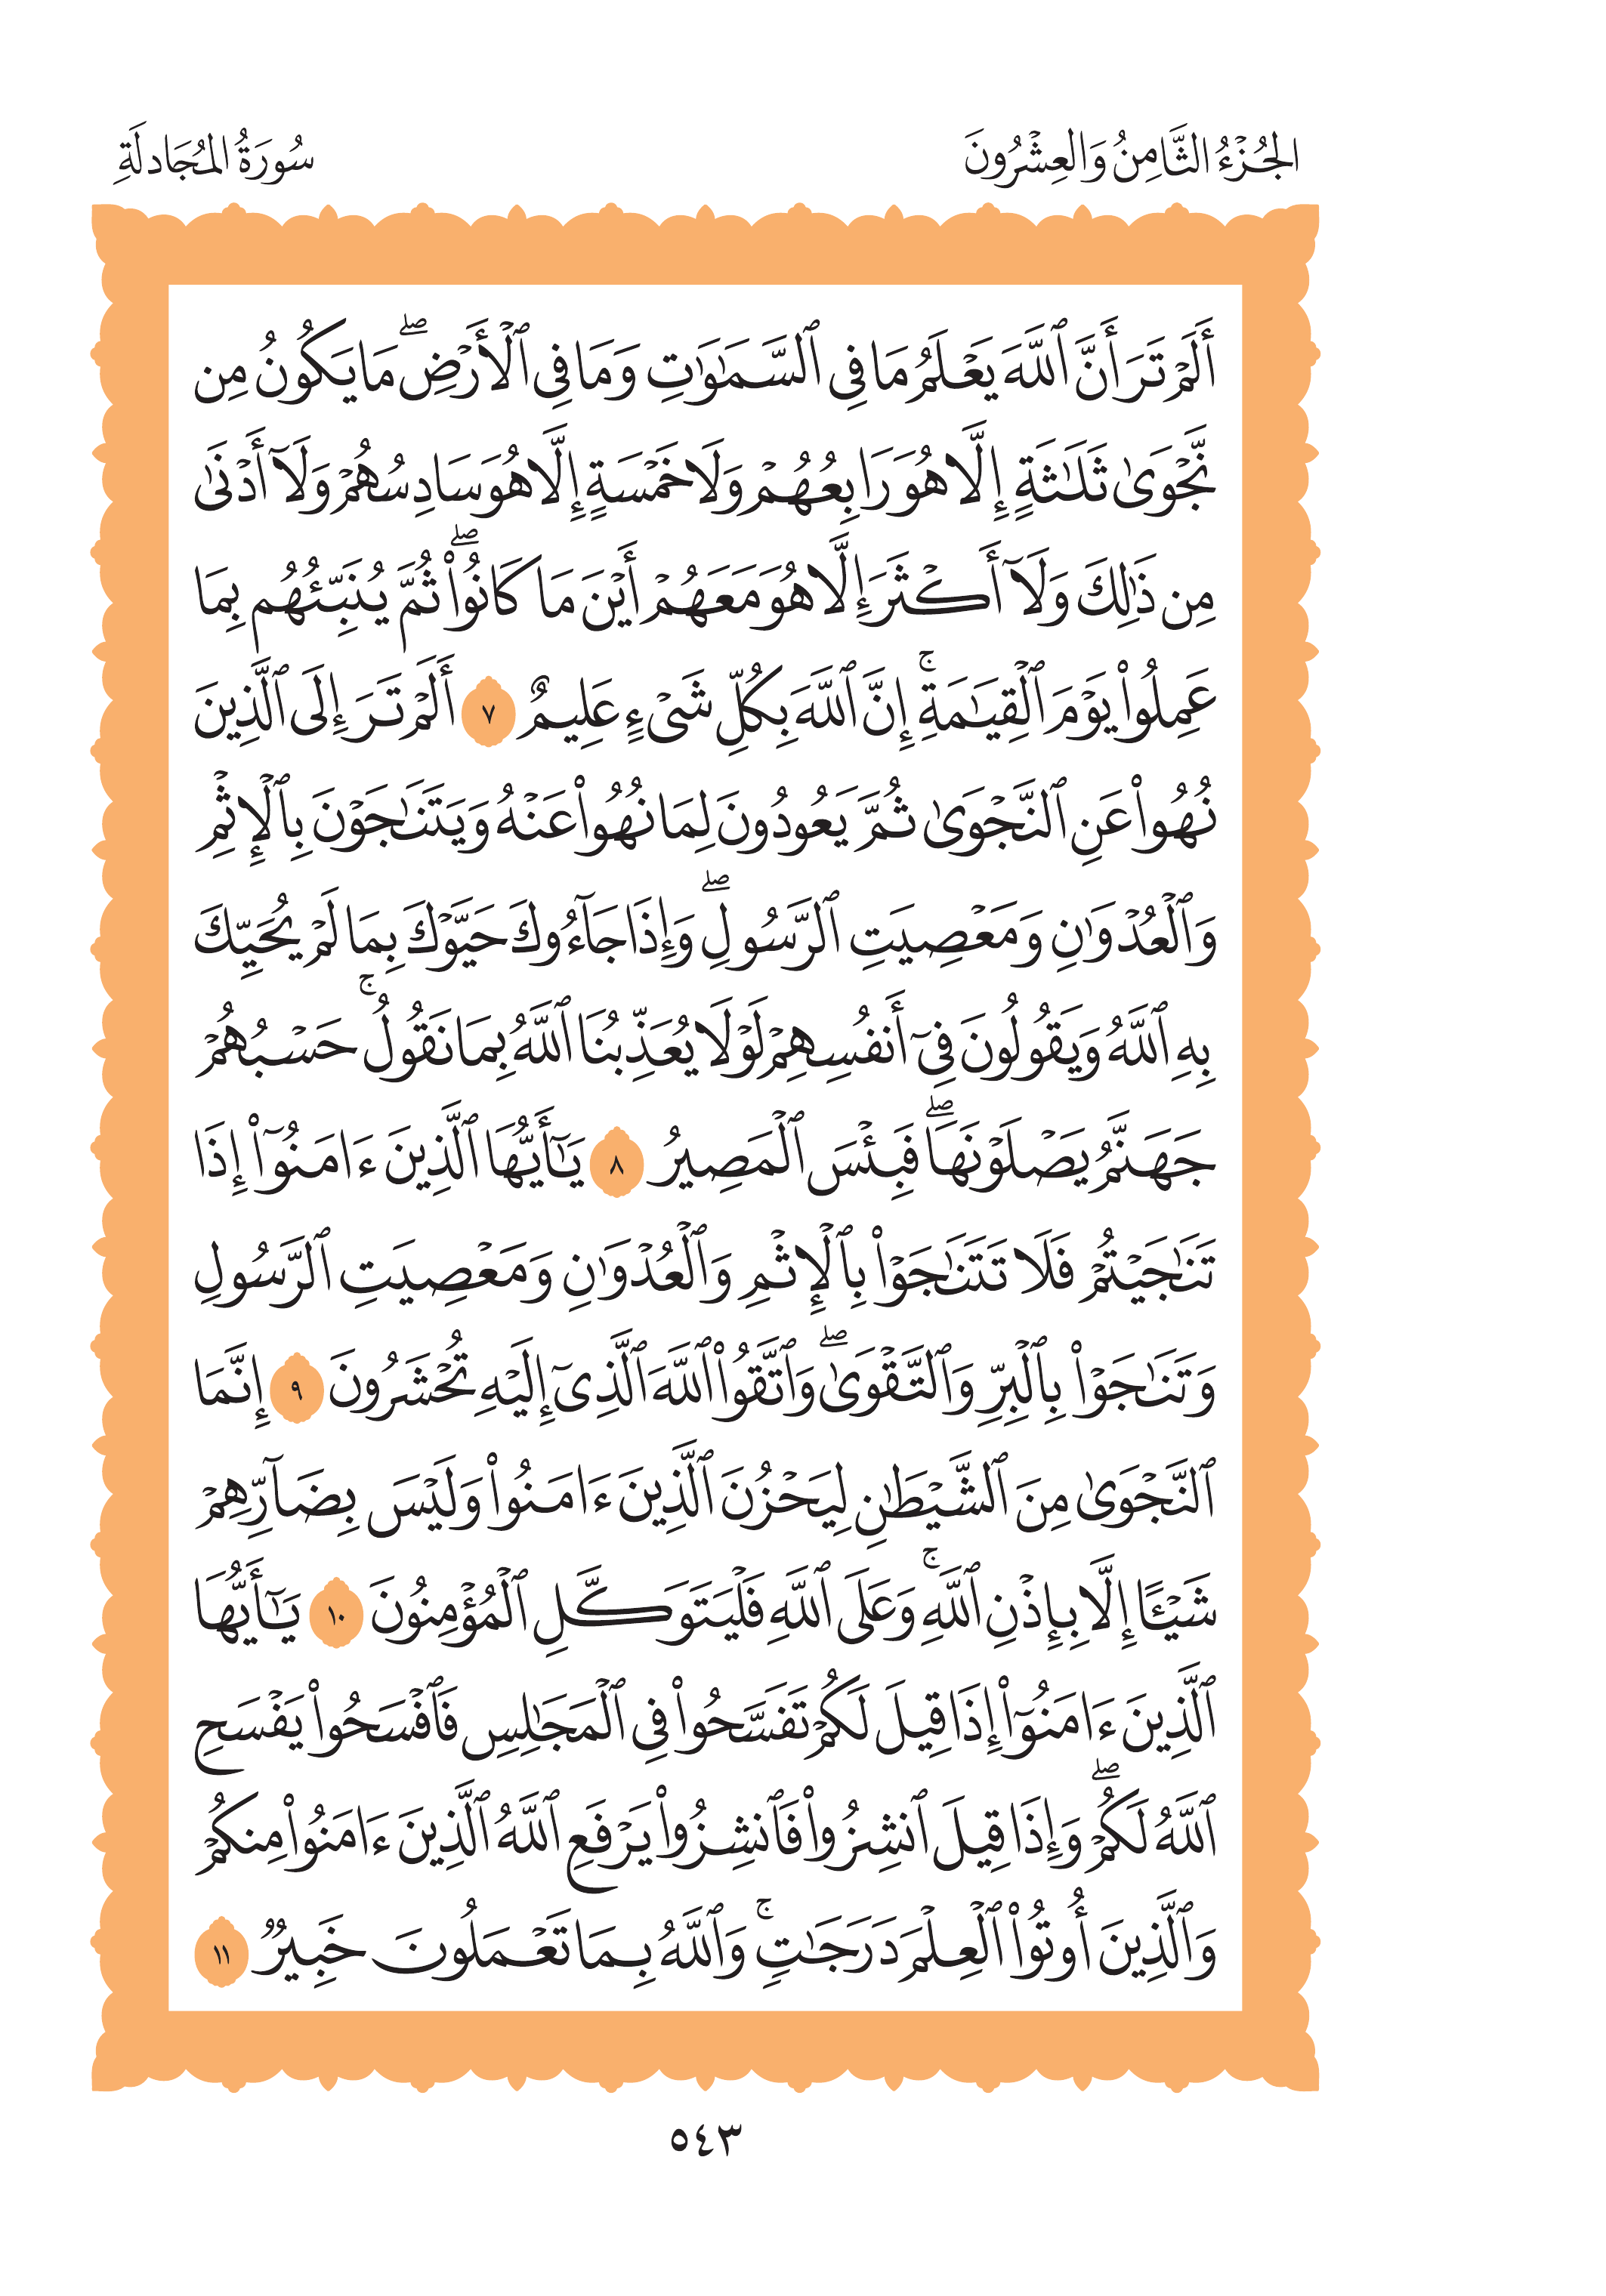 الجُزْءُ الثَّامِنُ وَالعِشْرُونَ
سُورَةُ المُجَادلَةِ
أَلَمۡ تَرَ أَنَّ ٱللَّهَ يَعۡلَمُ مَا فِي ٱلسَّمَٰوَٰتِ وَمَا فِي ٱلۡأَرۡضِۖ مَا يَكُونُ مِن
نَّجۡوَىٰ ثَلَٰثَةٍ إِلَّا هُوَ رَابِعُهُمۡ وَلَا خَمۡسَةٍ إِلَّا هُوَ سَادِسُهُمۡ وَلَآ أَدۡنَىٰ
مِن ذَٰلِكَ وَلَآ أَكۡثَرَ إِلَّا هُوَ مَعَهُمۡ أَيۡنَ مَا كَانُواْۖ ثُمَّ يُنَبِّئُهُم بِمَا
عَمِلُواْ يَوۡمَ ٱلۡقِيَٰمَةِۚ إِنَّ ٱللَّهَ بِكُلِّ شَيۡءٍ عَلِيمٌ ٧ أَلَمۡ تَرَ إِلَى ٱلَّذِينَ
نُهُواْ عَنِ ٱلنَّجۡوَىٰ ثُمَّ يَعُودُونَ لِمَا نُهُواْ عَنۡهُ وَيَتَنَٰجَوۡنَ بِٱلۡإِثۡمِ
وَٱلۡعُدۡوَٰنِ وَمَعۡصِيَتِ ٱلرَّسُولِۖ وَإِذَا جَآءُوكَ حَيَّوۡكَ بِمَا لَمۡ يُحَيِّكَ
بِهِ ٱللَّهُ وَيَقُولُونَ فِيٓ أَنفُسِهِمۡ لَوۡلَا يُعَذِّبُنَا ٱللَّهُ بِمَا نَقُولُۚ حَسۡبُهُمۡ
جَهَنَّمُ يَصۡلَوۡنَهَاۖ فَبِئۡسَ ٱلۡمَصِيرُ ٨ يَٰٓأَيُّهَا ٱلَّذِينَ ءَامَنُوٓاْ إِذَا
تَنَٰجَيۡتُمۡ فَلَا تَتَنَٰجَوۡاْ بِٱلۡإِثۡمِ وَٱلۡعُدۡوَٰنِ وَمَعۡصِيَتِ ٱلرَّسُولِ
وَتَنَٰجَوۡاْ بِٱلۡبِرِّ وَٱلتَّقۡوَىٰۖ وَٱتَّقُواْ ٱللَّهَ ٱلَّذِيٓ إِلَيۡهِ تُحۡشَرُونَ ٩ إِنَّمَا
ٱلنَّجۡوَىٰ مِنَ ٱلشَّيۡطَٰنِ لِيَحۡزُنَ ٱلَّذِينَ ءَامَنُواْ وَلَيۡسَ بِضَآرِّهِمۡ
شَيۡـًٔا إِلَّا بِإِذۡنِ ٱللَّهِۚ وَعَلَى ٱللَّهِ فَلۡيَتَوَكَّلِ ٱلۡمُؤۡمِنُونَ ١٠ يَٰٓأَيُّهَا
ٱلَّذِينَ ءَامَنُوٓاْ إِذَا قِيلَ لَكُمۡ تَفَسَّحُواْ فِي ٱلۡمَجَٰلِسِ فَٱفۡسَحُواْ يَفۡسَحِ
ٱللَّهُ لَكُمۡۖ وَإِذَا قِيلَ ٱنشُزُواْ فَٱنشُزُواْ يَرۡفَعِ ٱللَّهُ ٱلَّذِينَ ءَامَنُواْ مِنكُمۡ
وَٱلَّذِينَ أُوتُواْ ٱلۡعِلۡمَ دَرَجَٰتٖۚ وَٱللَّهُ بِمَا تَعۡمَلُونَ خَبِيرٞ ١١
٥٤٣